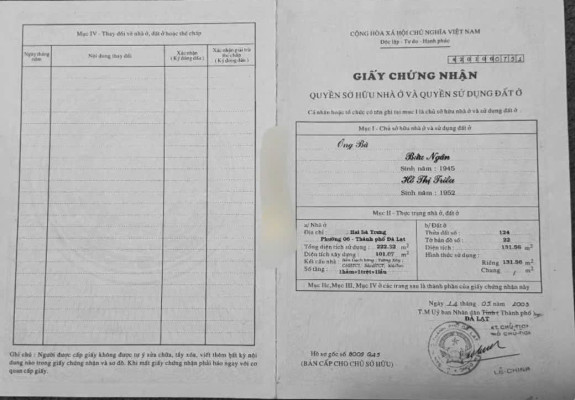 Mục IV - Thay đổi về nhà ở, đất ở hoặc thế chấp
Ngày tháng năm
Nội dung thay đổi
Xác nhận (Ký đóng dấu)
Xác nhận giải trừ thế chấp (Ký đóng dấu)
Ghi chú : Người được cấp giấy không được tự ý sửa chữa, tẩy xóa, viết thêm bất kỳ nội
dung nào trong giấy chứng nhận và sơ đồ. Khi mất giấy chứng nhận phải báo ngay với cơ
quan cấp giấy.
CỘNG HÒA XÃ HỘI CHỦ NGHĨA VIỆT NAM
Độc lập - Tự do - Hạnh phúc
GIẤY CHỨNG NHẬN
QUYỀN SỞ HỮU NHÀ Ở VÀ QUYỀN SỬ DỤNG ĐẤT Ở
Cá nhân hoặc tổ chức có tên ghi tại mục I là chủ sở hữu nhà ở và sử dụng đất ở
Mục I - Chủ sở hữu nhà ở và sử dụng đất ở
Ông Bà
Bửu Ngân
Sinh năm : 1945
Hồ Thị Triều
Sinh năm : 1952
Mục II - Thực trạng nhà ở, đất ở
a/ Nhà ở
Địa chỉ : Hai Bà Trưng
Phường 06 - Thành phố Đà Lạt
Tổng diện tích sử dụng : 222.32 m²
Diện tích xây dựng : 101.07 m²
Kết cấu nhà
Số tầng : 1hầm+1trệt+1lầu
b/ Đất ở
Thửa đất số : 124
Tờ bản đồ số : 22
Diện tích : 131.56 m²
Hình thức sử dụng :
Riêng 131.56 m²
Chung / m²
Mục IIc, Mục III, Mục IV ở các trang sau là thành phần của giấy chứng nhận này
Ngày 14 tháng 05 năm 2003
T.M Uỷ ban Nhân dân Tỉnh ( Thành phố )
ĐÀ LẠT
KT. CHỦ TỊCH
PHÓ CHỦ TỊCH
Hồ sơ gốc số
(BẢN CẤP CHO CHỦ SỞ HỮU)